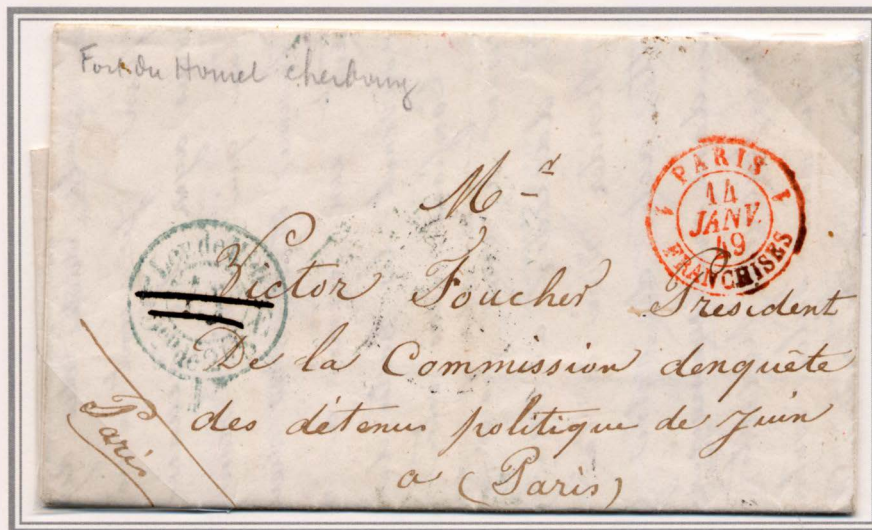 Fort du Homet cherbourg
Md
PARIS
14
JANV.
49
FRANCHISES
Victor Foucher President
De la Commission denquête
des détenus politique de Juin
a (Paris)
Paris
Lev. de